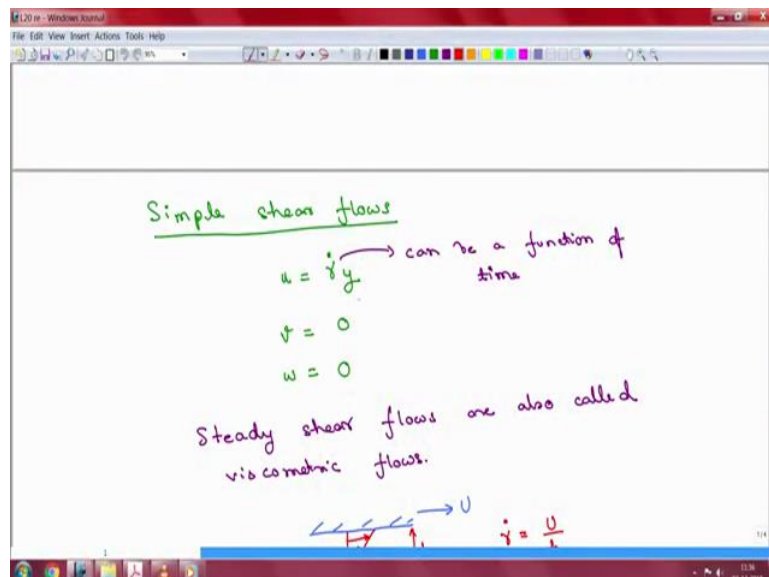 L20 re - Windows Journal
File Edit View Insert Actions Tools Help
Simple shear flows
u = γ̇ y → can be a function of
time
v = 0
w = 0
Steady shear flows are also called
viscometric flows.
→ U
γ̇ = U
1
1/4
11:36